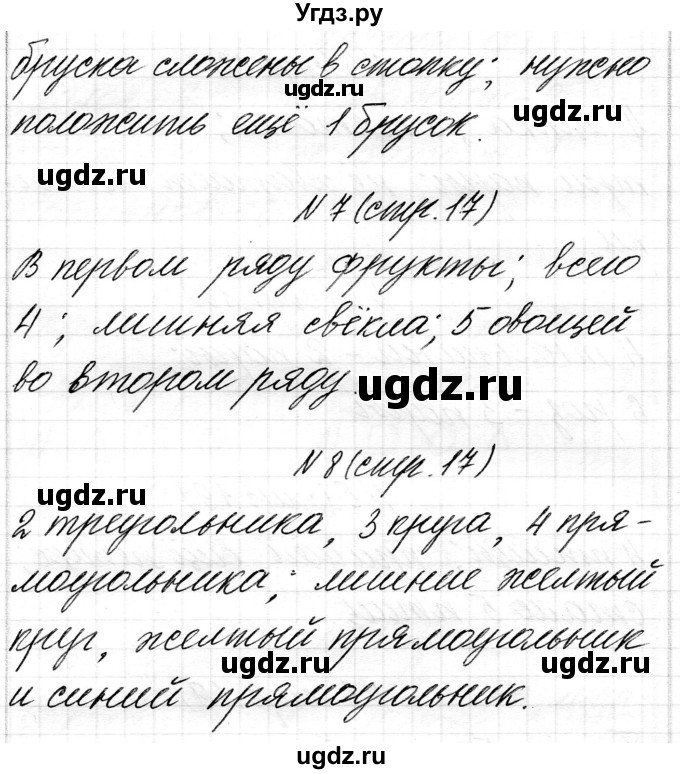 Угдз.ру
бруска сложены в стопку; нужно
ugdz.ru
ugdz.ru
положить ещё 1 брусок.
ugdz.ru
N 7 (стр. 17)
В первом ряду фрукты; всего
4; лишняя свёкла; 5 овощей
во втором ряду.
ugdz.ru
N 8 (стр. 17)
ugdz.ru
2 треугольника, 3 круга, 4 пря-
моугольника; лишние желтый
круг, желтый прямоугольник
ugdz.ru
ugdz.ru
и синий прямоугольник.
ugdz.ru